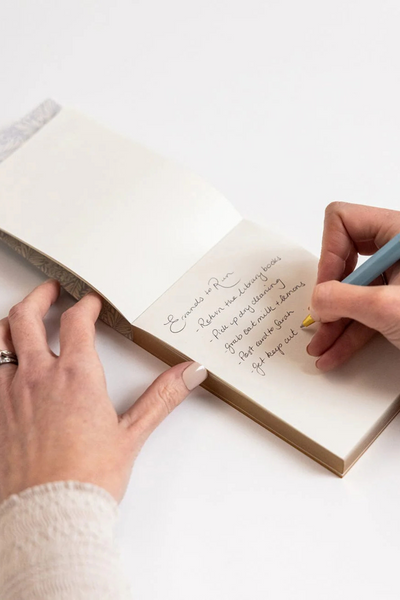 Errands to Run
- Return the library books
- Pick up dry cleaning
- grab oat milk + lemons
- Post card to Sarah
- get keys cut